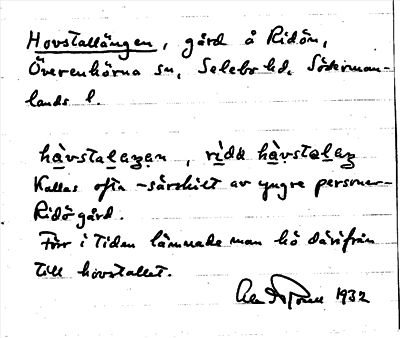 Hovstallängen, gård å Ridön,
Överenhörna sn, Selebo hd, Söderman-
lands l.
hàvstalaŋən, rìdä hàvstalaŋ
Kallas ofta - särskilt av yngre personer -
Ridö gård.
Förr i tiden lämnade man hö därifrån
till hovstallet.
1932